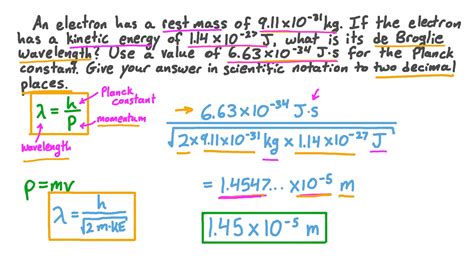 An electron has a rest mass of 9.11×10⁻³¹ kg. If the electron
has a kinetic energy of 1.14×10⁻²⁷ J, what is its de Broglie
wavelength? Use a value of 6.63×10⁻³⁴ J·s for the Planck
constant. Give your answer in scientific notation to two decimal
places.
λ = h/p
Planck
constant
momentum
wavelength
p=mv
λ = h/√2m·KE
→ 6.63×10⁻³⁴ J·s
√2×9.11×10⁻³¹ kg × 1.14×10⁻²⁷ J
= 1.4547... ×10⁻⁵ m
1.45×10⁻⁵ m